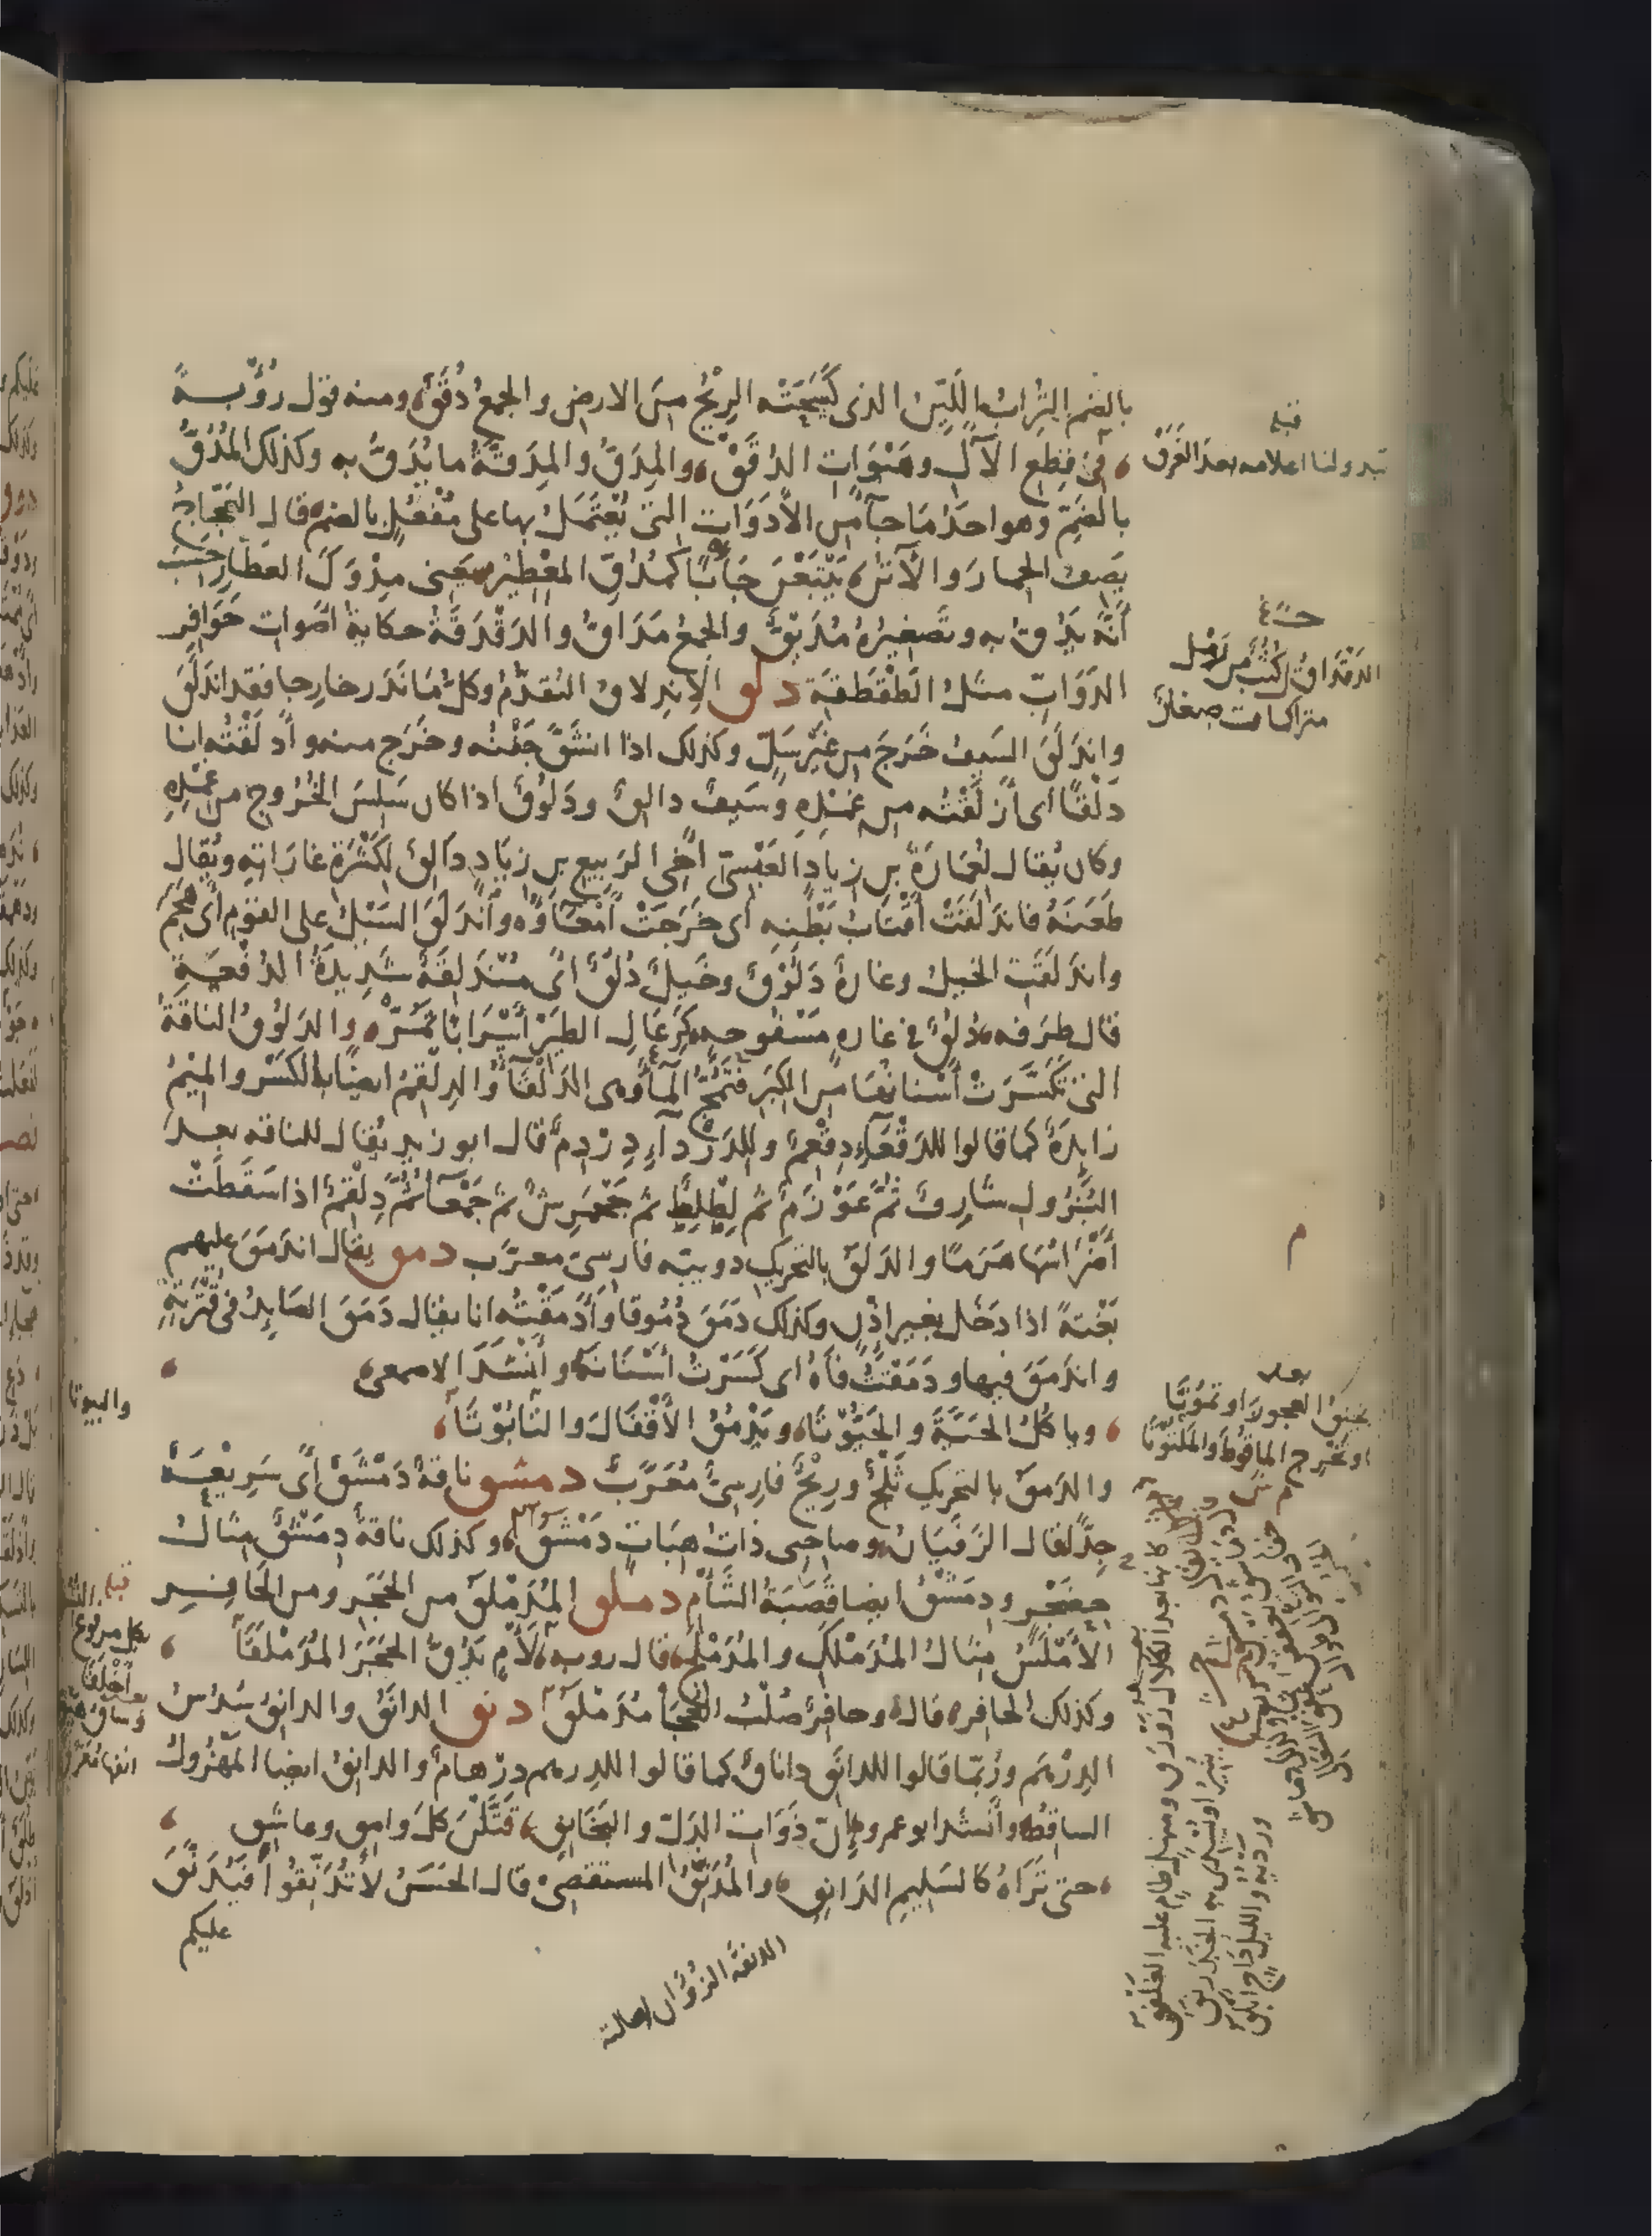 بالضم التُراب اللَيّن الذى كَسَحَتْه الرِيْحُ مِنَ الارض والجمعُ دُقَقٌ ومنه قول رُؤْبــةَ
فى قِطَع الآلِ وهَبْوَاتِ الدُقَقْ والمِدَقُّ والمِدَقّةُ ما يُدَقُّ به وكذلك المُدُقُّ
بالضَمّ وهو احدُ مَا جآءَ من الأَدَوَاتِ التى يُعْتَمَلُ بها على مُفْعُلٍ بالضم قال العَجّاجُ
يَصِفُ الحمارَ والأُتُنَ يَتْبَعْنَ جَأْبًا كَمُدُقِّ المِعْطِيْرْ يعنى مِدْوَكَ العطّارِ حَسِبَ
أَنّهُ يَدُقُّ به وتَصغِيرُهُ مُدَيْقٌّ والجمعُ مَدَاقُّ والدَقْدَقَةُ حكايةُ اَصواتِ حَوَافِرِ
الدَوَابّ مثلُ الطَقْطَقَةِ دلق الاِنْدِلاقُ التَقَدُّمُ وكلُّ مَا نَدَرَ خارِجا فقد اندَلَقَ
واندَلَقَ السَيفُ خَرَجَ من غَيْرِ سَلٍّ وكذلك اذا انشَقَّ جَفْنُه وخَرَج منه وأَدْلَقْتُه انا
دَلْقًا اى أَزْلَقْتُه من غِمْدِهِ وسَيفٌ دالِقٌ ودَلُوقٌ اذا كان سَلِسَ الخُرُوجِ من غِمْدِهِ
وكان يُقال لعُمَارَةَ بن زِيادٍ العَبْسىّ أخى الرَبيع بن زِيَادٍ دَالِقٌ لكَثْرَةِ غارَاتِه ويُقال
طَعَنَهُ فاندَلَقَتْ أَقْتَابُ بَطْنِهِ أى خَرَجَتْ أَمْعَآؤُه وأَندَلَقَ السَيْلُ على القوم أى هَجَمَ
واندَلَقَتِ الخيلُ وغارةٌ دَلُوْقٌ وخَيلٌ دُلُقٌ اى مُنْدَلِقَةٌ شَدِيدَةُ الدُفْعَــةِ
قال طرَفه دُلُقٌ فى غارةٍ مَسْفُوحةٍ كرِعَالِ الطَيْرِ أَسْرَابًا تَمُرّْ والدَلُوقُ الناقةُ
التى تَكَسَّرَتْ أَسْنانُهَا من الكِبَرِ فَتَمُجُّ المآءَ وهى الدَلْقَآءُ والدِلْقِمُ ايضًا بالكَسْرِ والمِيْمُ
زايِدَةٌ كما قالوا للدَقْعَآءِ دِقْعِمٌ وللدَرْدآءِ دِرْدِمٌ قال ابو زيدٍ يُقال للناقه بعــد
البُزُولِ شَارِفٌ ثُمّ عَوْزَمٌ ثم لِطْلِطٌ ثم جَحْمَرِشٌ ثم جَمْعَآءُ ثُمّ دِلْقِمٌ اذا سَقَطَتْ
أَضْرَاسُهَا هَرَمًا والدَلَقُ بالتحريكِ دويبّه فارسىّ معرّب دمق يقال اندَمَقَ عليهم
بَغْتةً اذا دَخَل بغير اذْنٍ وكذلك دَمَقَ دُمُوقا وأَدْمَقْتُه انا يقال دَمَقَ الصَايِدُ فى قُتْرَتِهِ
واندَمَقَ فيها ودَمَقْتُ فَاهُ اى كَسَرْتُ أَسْنَانَهُ وأَنْشَدَ الاصمعى
وياكُلُ الحَيَّةَ والحَيُّوْتَا ويَدْمُقُ الأَقْفَالَ والتَّابُوْتَا
والدَمَقُ بالتحريك ثَلْجٌ ورِيْحٌ فارسىٌّ مُعَرَّبٌ دمشق ناقةٌ دَمْشَقٌ أى سَرِيعَــةٌ
جِدًّا قال الزَفَيَانُ وصاحِبى ذاتُ هِبَابٍ دَمْشَقُ وكذلك ناقةٌ دِمَشْقٌ مثالُ
حِضَجْرٍ ودِمَشْقُ ايضا قَصَبَةُ الشَّأْمِ دملق المُدَمْلَقُ من الحَجَرِ ومن الحَافِــرِ
الأَمْلَسُ مثالُ المُدَمْلَكِ والمُدَمْلَجِ قال روبه لأْمٍ يَدُقُّ الحَجَرَ المُدَمْلَقَا
وكذلك الحافِرُ قال وحافِرٌ صُلْبُ العُجَى مُدَمْلَقُ دنق الدانَقُ والدانِقُ سُدْسُ
الدِرْهَم ورُبّما قالوا للدانَق داناقٌ كما قالوا للدرهم دِرْهامٌ والدانِقُ ايضا المَهْزُولُ
الساقِطُ وأَنشدَ ابو عمرو إنّ ذَوَاتِ الدَلّ والبَخَانِقِ قَتَلْنَ كلَّ وامِقٍ وعاشِقِ
حتى تَرَاهُ كالسَلِيمِ الدَانِقِ والمُدَنِّقُ المستقصى قال الحَسَنُ لا تُدَنِّقُوا فَيُدَنَّقَ
عليكم
قبله
تبدو لنا اعلامه بعد الغَرَقْ
الدَقْدَاقُ كُثُبٌ من رَمْل
متراكمات صغارٌ
م
بعده
يخنقُ العجوزَ او تموتَا
او تخرج الماقُوطَ والمَلْتُوتَا
والبيوتا